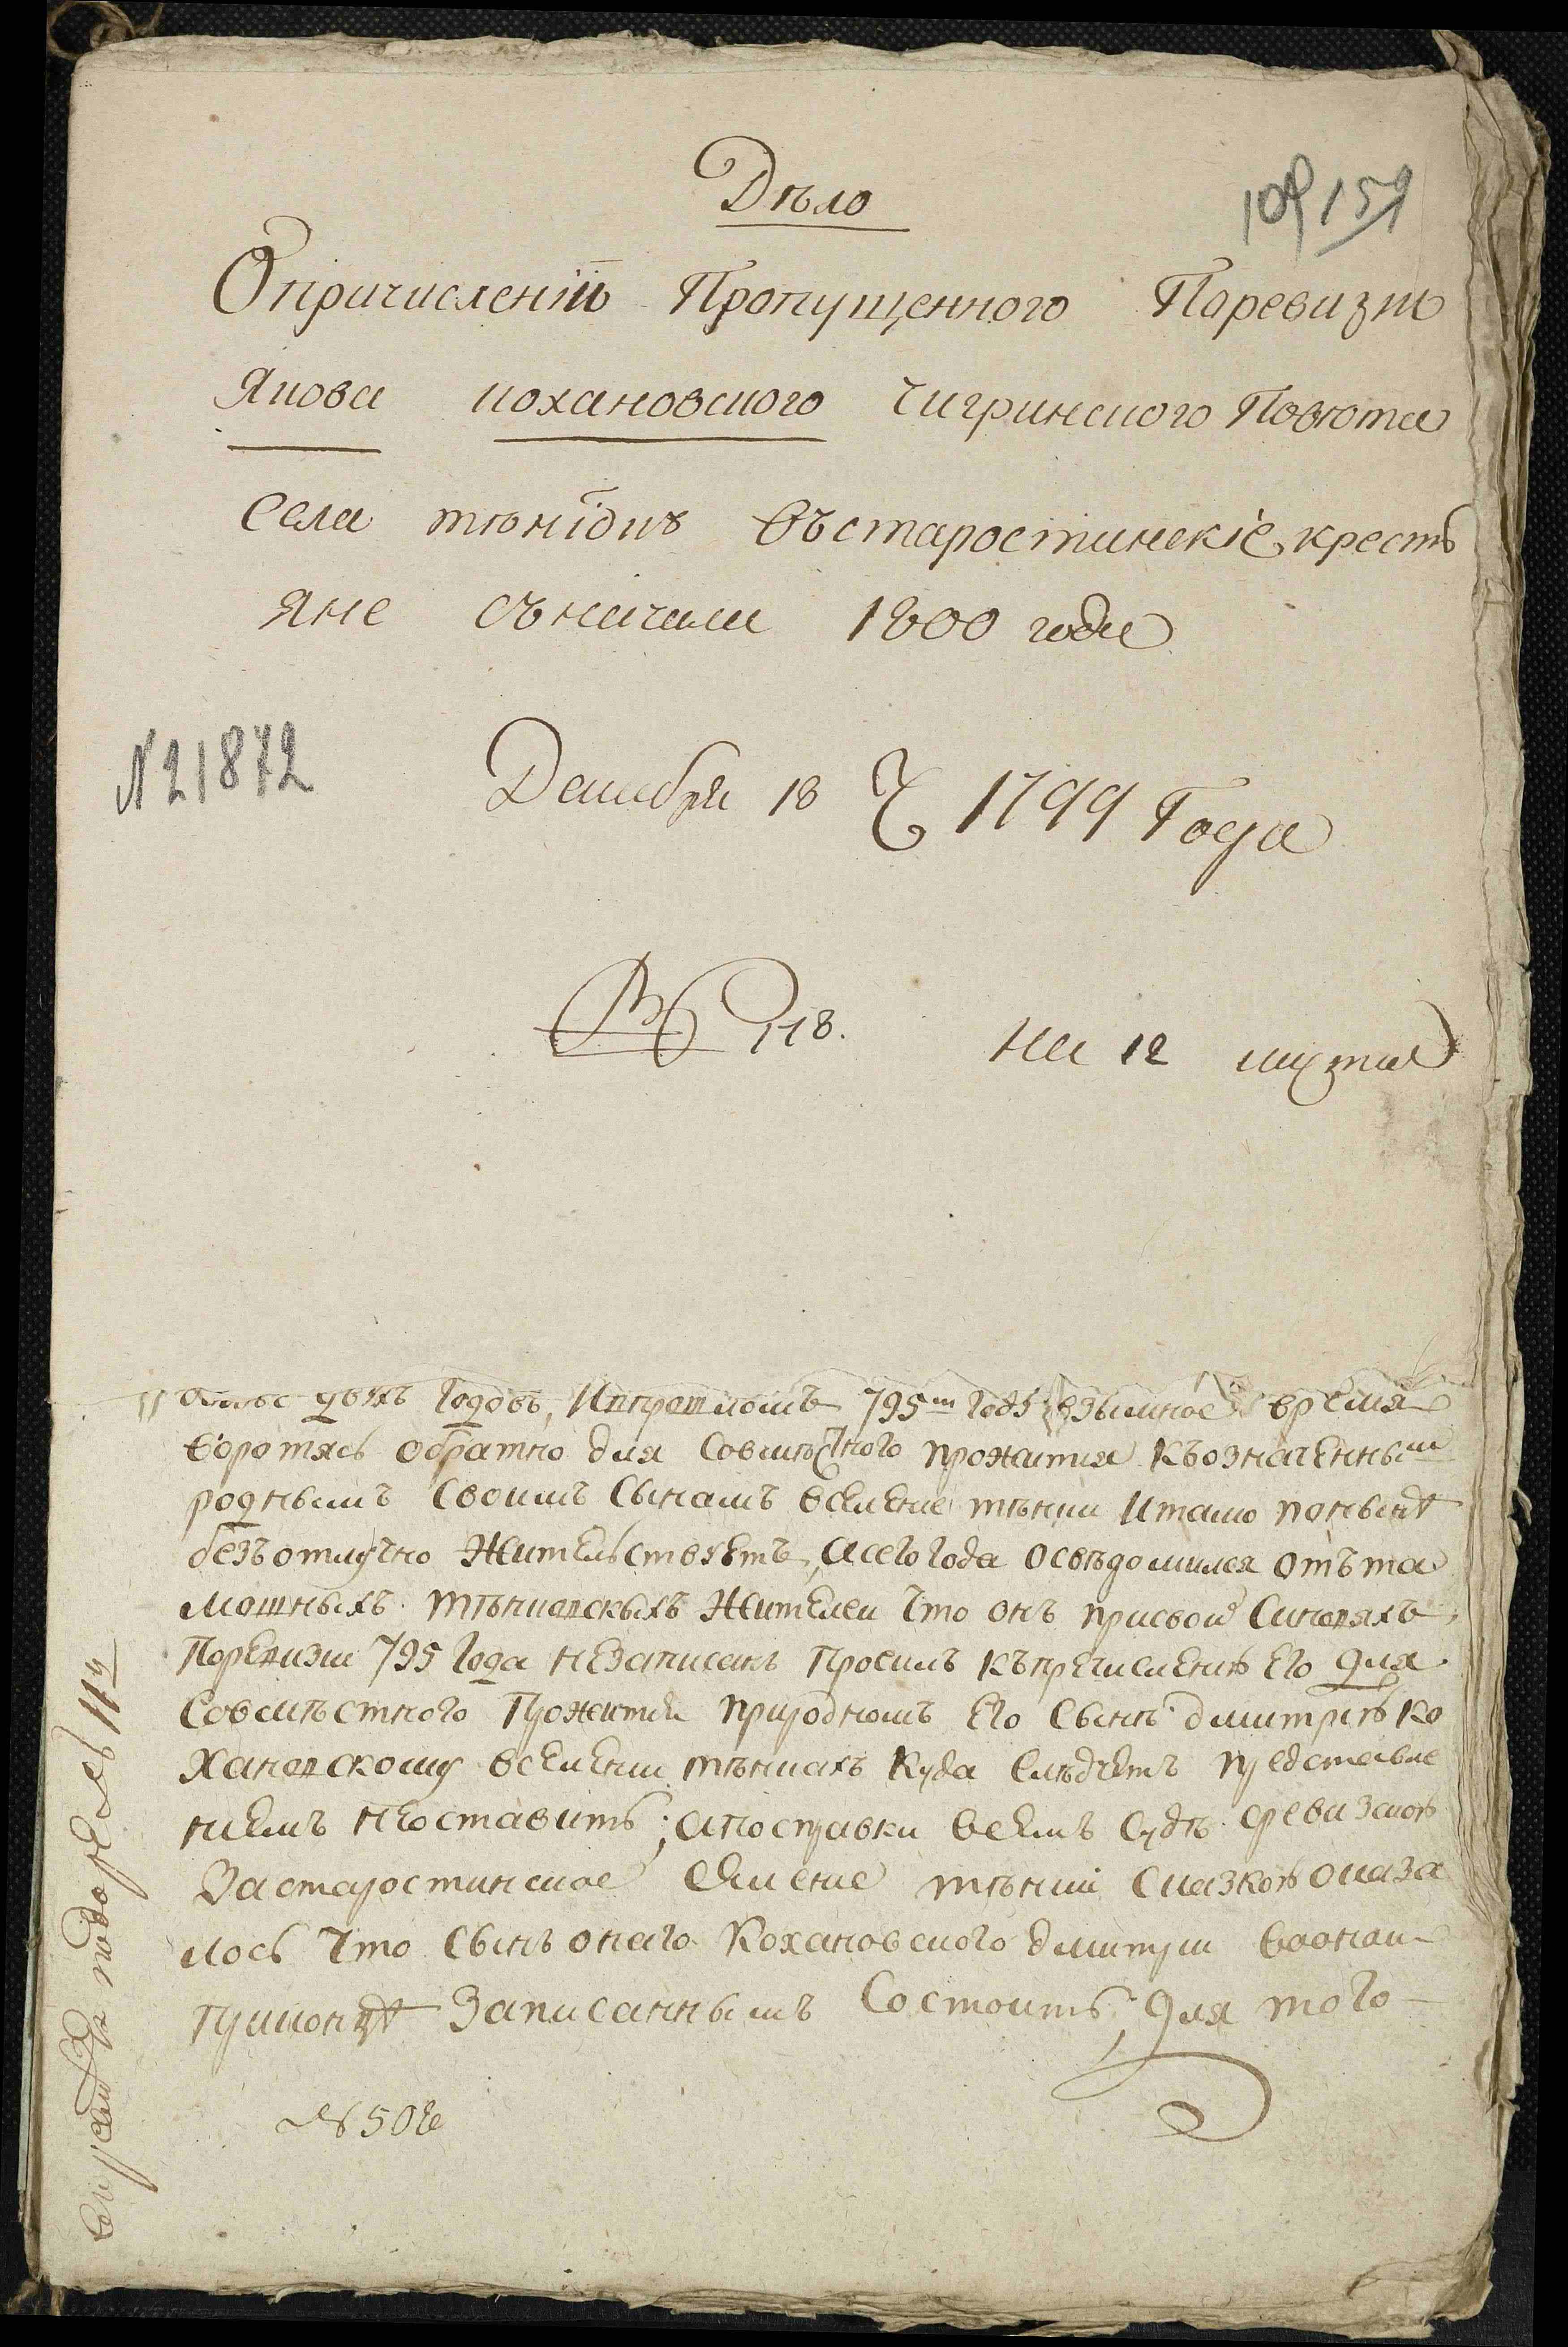 Дѣло
109 159
Опричисленіи Пропущенного Поревизіи
Якова Кохановского Чигринского Повѣта
села тѣнїокъ въ старостинскіе кресть
яне съ начала 1800 года
№ 21872
Декабря 18 Ч 1799 Года
118. на 12 листах
двухъ годовъ, И впрошломъ 795м годѣ взымное время
воротясь обратно для совмѣстного прожитія къ означеннымъ
роднымъ своимъ сынамъ вселение тѣнки и тамо поныне
безъотлучно жительствуетъ, а сего года освѣдомился отъ та
мошныхъ жителеи что онъ
Поревизии 795 года незаписанъ просилъ къ пречислению его для
совмѣстного прожитія природномъ его сынѣ дмитрию Ко
хановскому вселении тѣнкахъ куда слѣдуетъ представле
ниемъ неоставить; а посправки всемъ судѣ сревизскою
Застаростинское селение тѣнки сказкою оказа
лось что сынъ онаго Кохановского дмитрии
Записаннымъ состоитъ, для того
№ 502